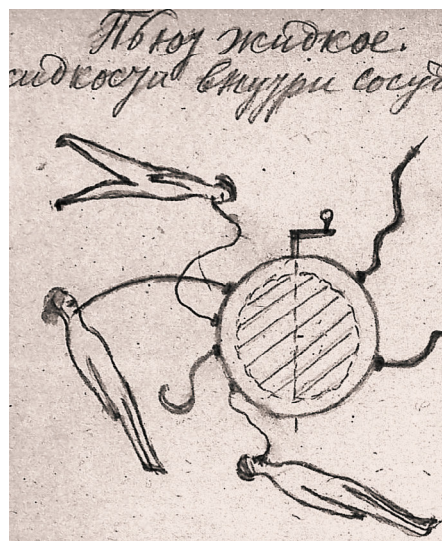 Пьют жидкое.
жидкости внутри сосуд